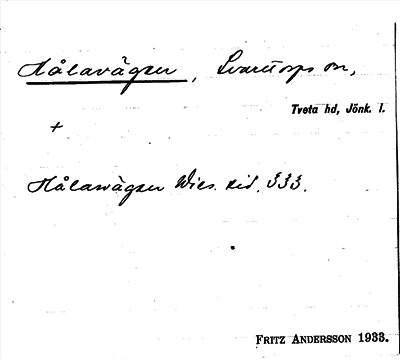 Hålavägen, Svarttorps sn,
Tveta hd, Jönk. l.
+
Hålawägen Wies. sid. 333.
FRITZ ANDERSSON 1933.